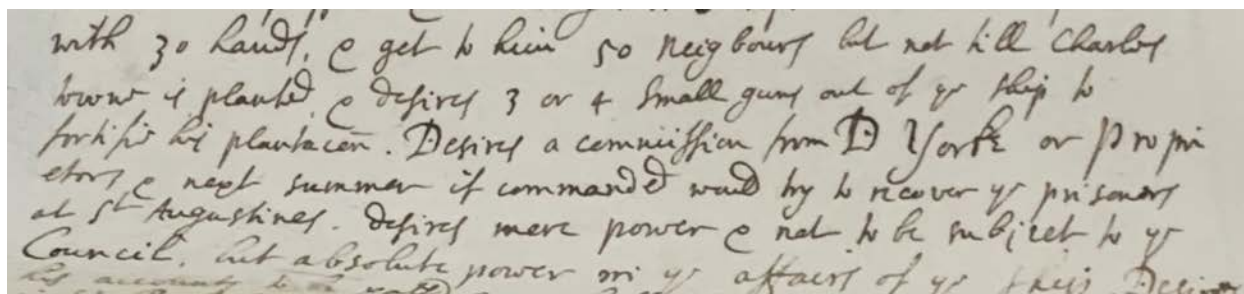 with 30 hands, & get to him 50 neigbours but not till Charles
towne is planted, & desires 3 or 4 small guns out of ye ship to
fortifie his plantacon. Desires a commission from D Yorke or Propri
etors, & next summer if commanded would try to recover ye prisoners
at St Augustines. desires more power & not to be subject to ye
Council. but absolute power in ye affairs of ye ship Desires
his accounts to